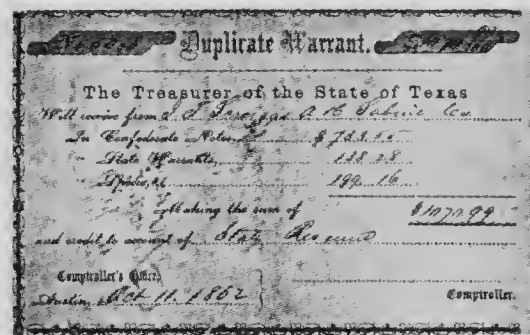 Duplicate Warrant.
The Treasurer of the State of Texas
Will receive from A & Sabine Co.
In Confederate Notes, $
State Warrants, 138.28
Specie, 199.16
Making the sum of
and credit to account of State Revenue
Comptroller's Office,
Austin, Oct 11 1862
Comptroller.